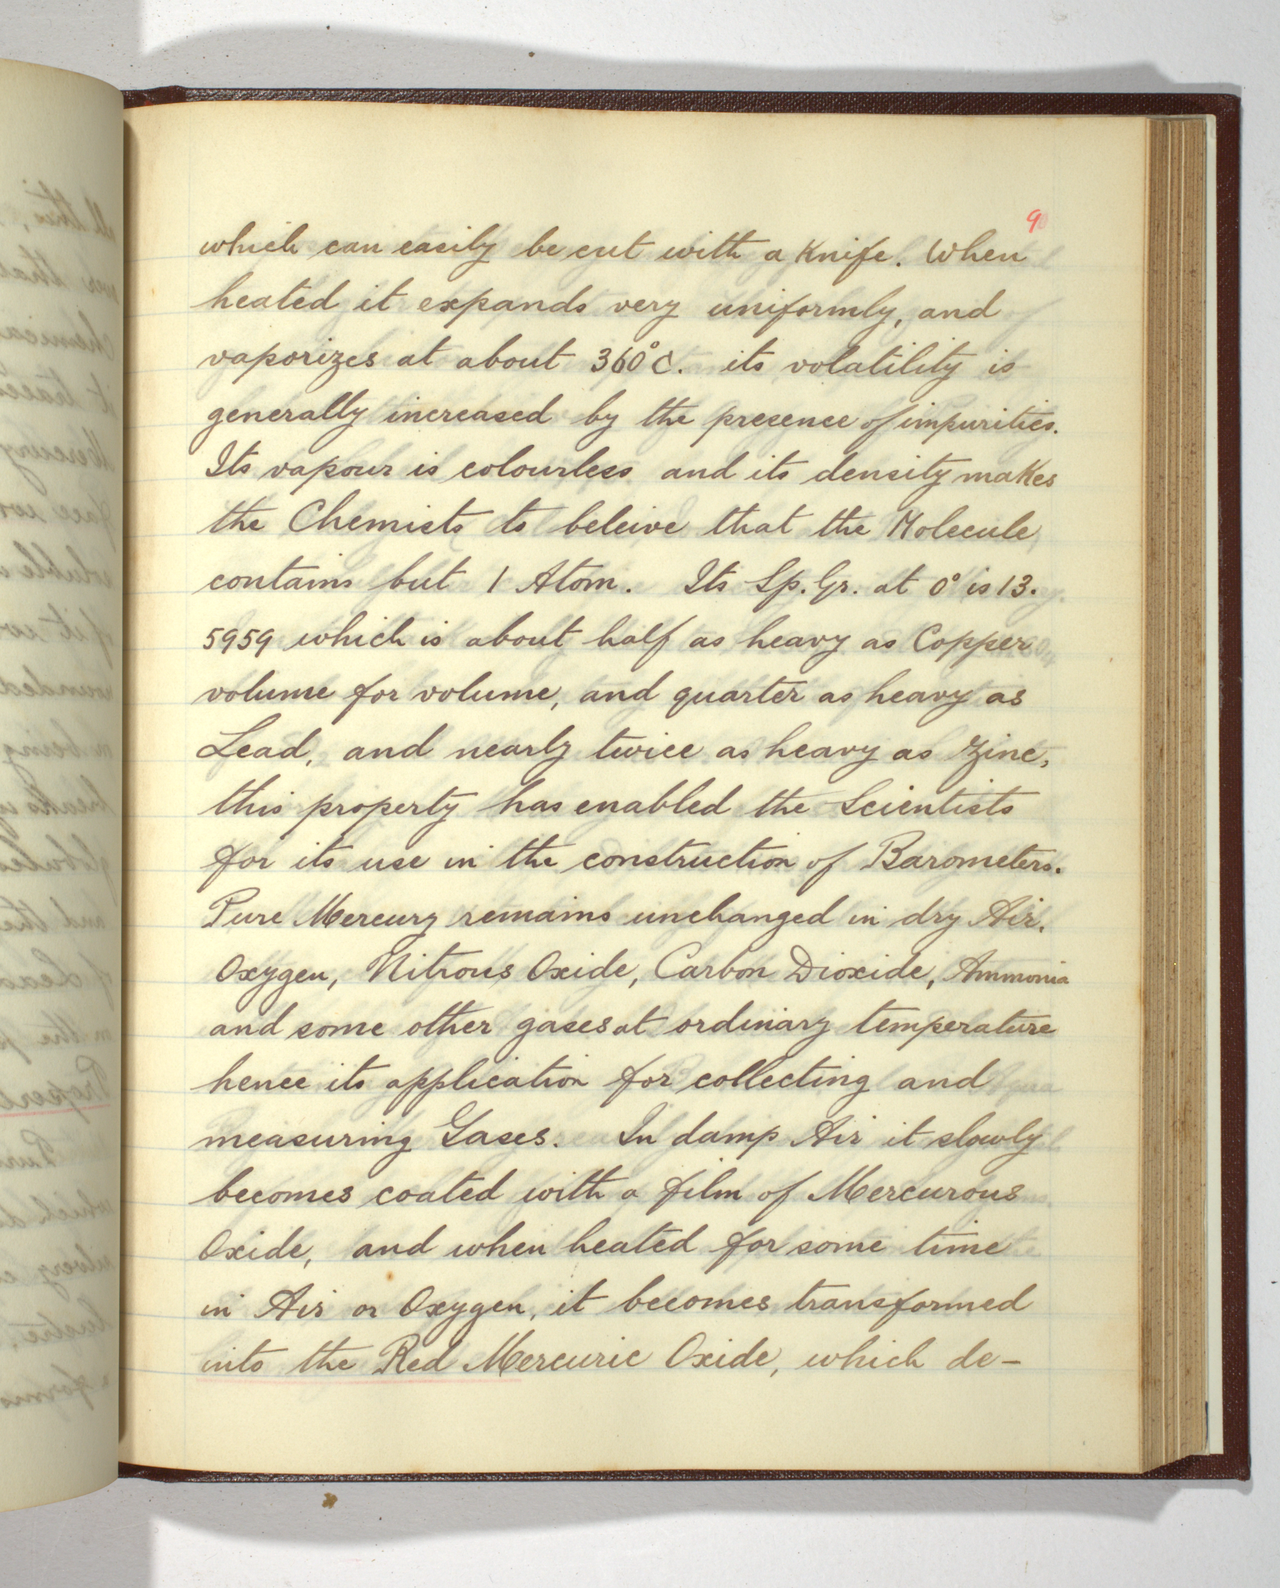 9
which can easily be cut with a Knife. When
heated it expands very uniformly, and
vaporizes at about 360°C. its volatility is
generally increased by the presence of impurities.
Its vapour is colourless and its density makes
the Chemists to beleive that the Molecule
contains but 1 Atom. Its Sp. Gr. at 0° is 13.
5959 which is about half as heavy as Copper
volume for volume, and quarter as heavy as
Lead, and nearly twice as heavy as Zinc,
this property has enabled the Scientists
for its use in the construction of Barometers.
Pure Mercury remains unchanged in dry Air.
Oxygen, Nitrous Oxide, Carbon Dioxide, Ammonia
and some other gases at ordinary temperature
hence its application for collecting and
measuring Gases. In damp Air it slowly
becomes coated with a film of Mercurous
Oxide, and when heated for some time
in Air or Oxygen, it becomes transformed
into the Red Mercuric Oxide, which de-